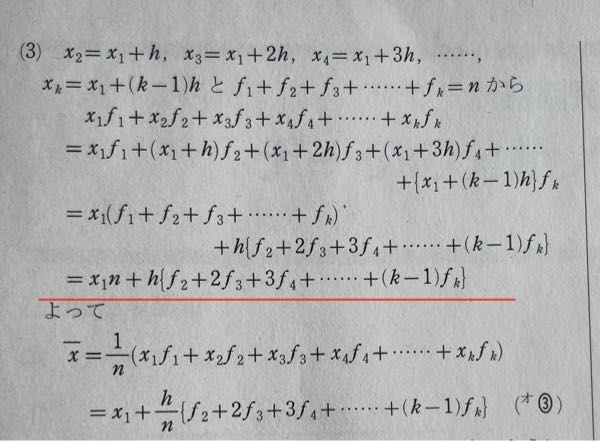 (3) x₂=x₁+h, x₃=x₁+2h, x₄=x₁+3h, ……,
xₖ=x₁+(k−1)h と f₁+f₂+f₃+……+fₖ=n から
x₁f₁+x₂f₂+x₃f₃+x₄f₄+……+xₖfₖ
=x₁f₁+(x₁+h)f₂+(x₁+2h)f₃+(x₁+3h)f₄+……
+{x₁+(k−1)h}fₖ
=x₁(f₁+f₂+f₃+……+fₖ)
+h{f₂+2f₃+3f₄+……+(k−1)fₖ}
=x₁n+h{f₂+2f₃+3f₄+……+(k−1)fₖ}
よって
x̄=1/n(x₁f₁+x₂f₂+x₃f₃+x₄f₄+……+xₖfₖ)
=x₁+h/n{f₂+2f₃+3f₄+……+(k−1)fₖ} (オ③)